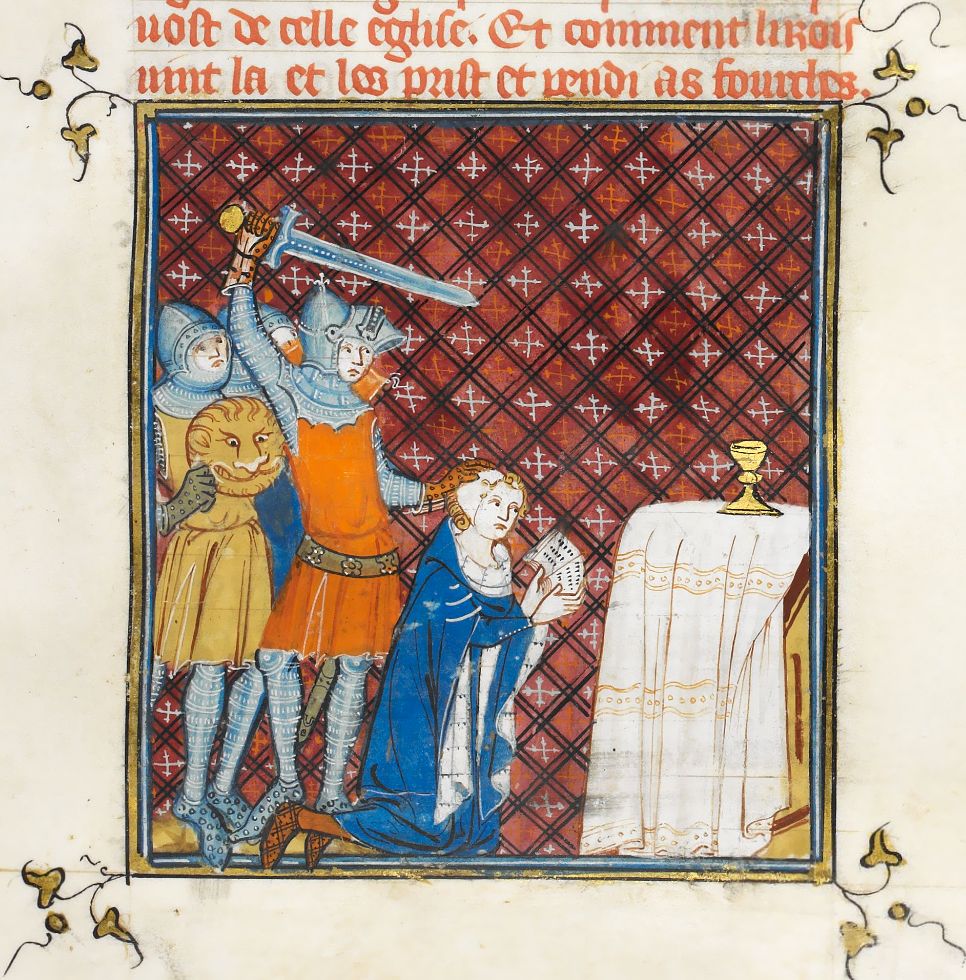 uost de celle eglise. Et comment li rois
uint la et les prist et pendi as fourches.